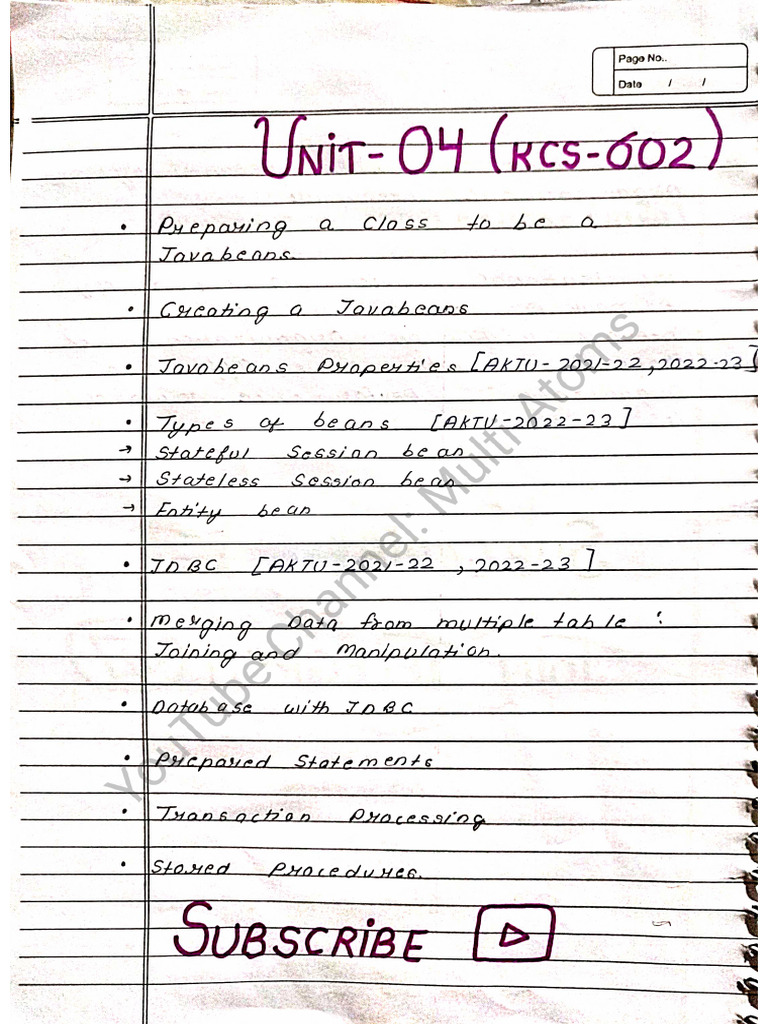 Page No..
Date / /
UNiT-04 (KCS-602)
• Preparing a Class to be a
Javabeans.
• Creating a Javabeans
• Javabeans Properties [AKTU-2021-22, 2022-23]
• Types of beans [AKTU-2022-23]
→ Stateful Session bean
→ Stateless Session bean
→ Entity bean
• JDBC [AKTU-2021-22, 2022-23]
• Merging Data from multiple table :
Joining and Manipulation.
• Database with JDBC
• Prepared Statements
• Transaction Processing
• Stored Procedures.
SUBSCRiBE
YouTube Channel: Multi Atoms